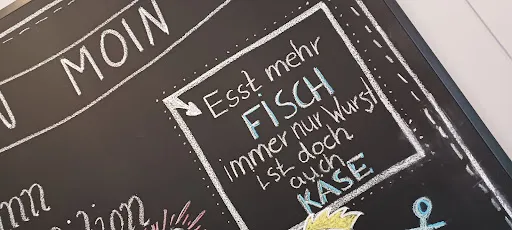 MOIN
Esst mehr
FISCH
immer nur Wurst
ist doch
auch
KÄSE